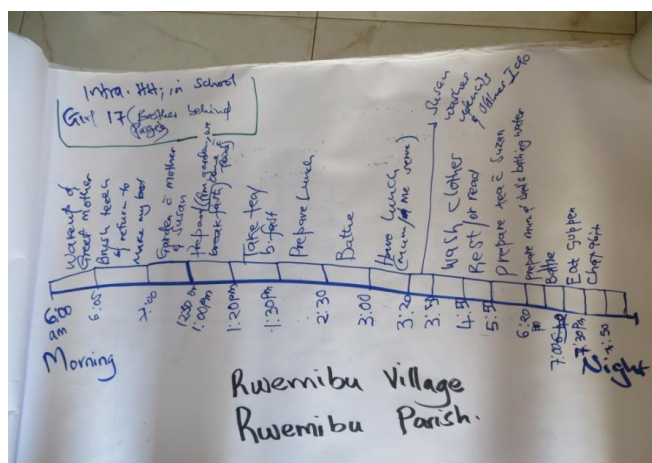 Intra. HH; in school
Girl 17 (brother behind
pages)
Wakeup &
Greet mother
Brush teeth
& return to
make my bed
Garden c̄ mother
& Susan
Prepare
breakfast
Take tea/
b.fast
Prepare Lunch
Bathe
Have Lunch
(mum/ me serve)
Susan
washes
utensils
Wash clothes
Rest/or read
Prepare tea c̄ Suzan
Prepare
bathing water
Bathe
Eat supper
6:00
am
6:05
7:00
1:00pm
1:20pm
1:30pm
2:30
3:00
3:20
6:20
7:00
7:30
Morning
Night
Rwemibu Village
Rwemibu Parish.